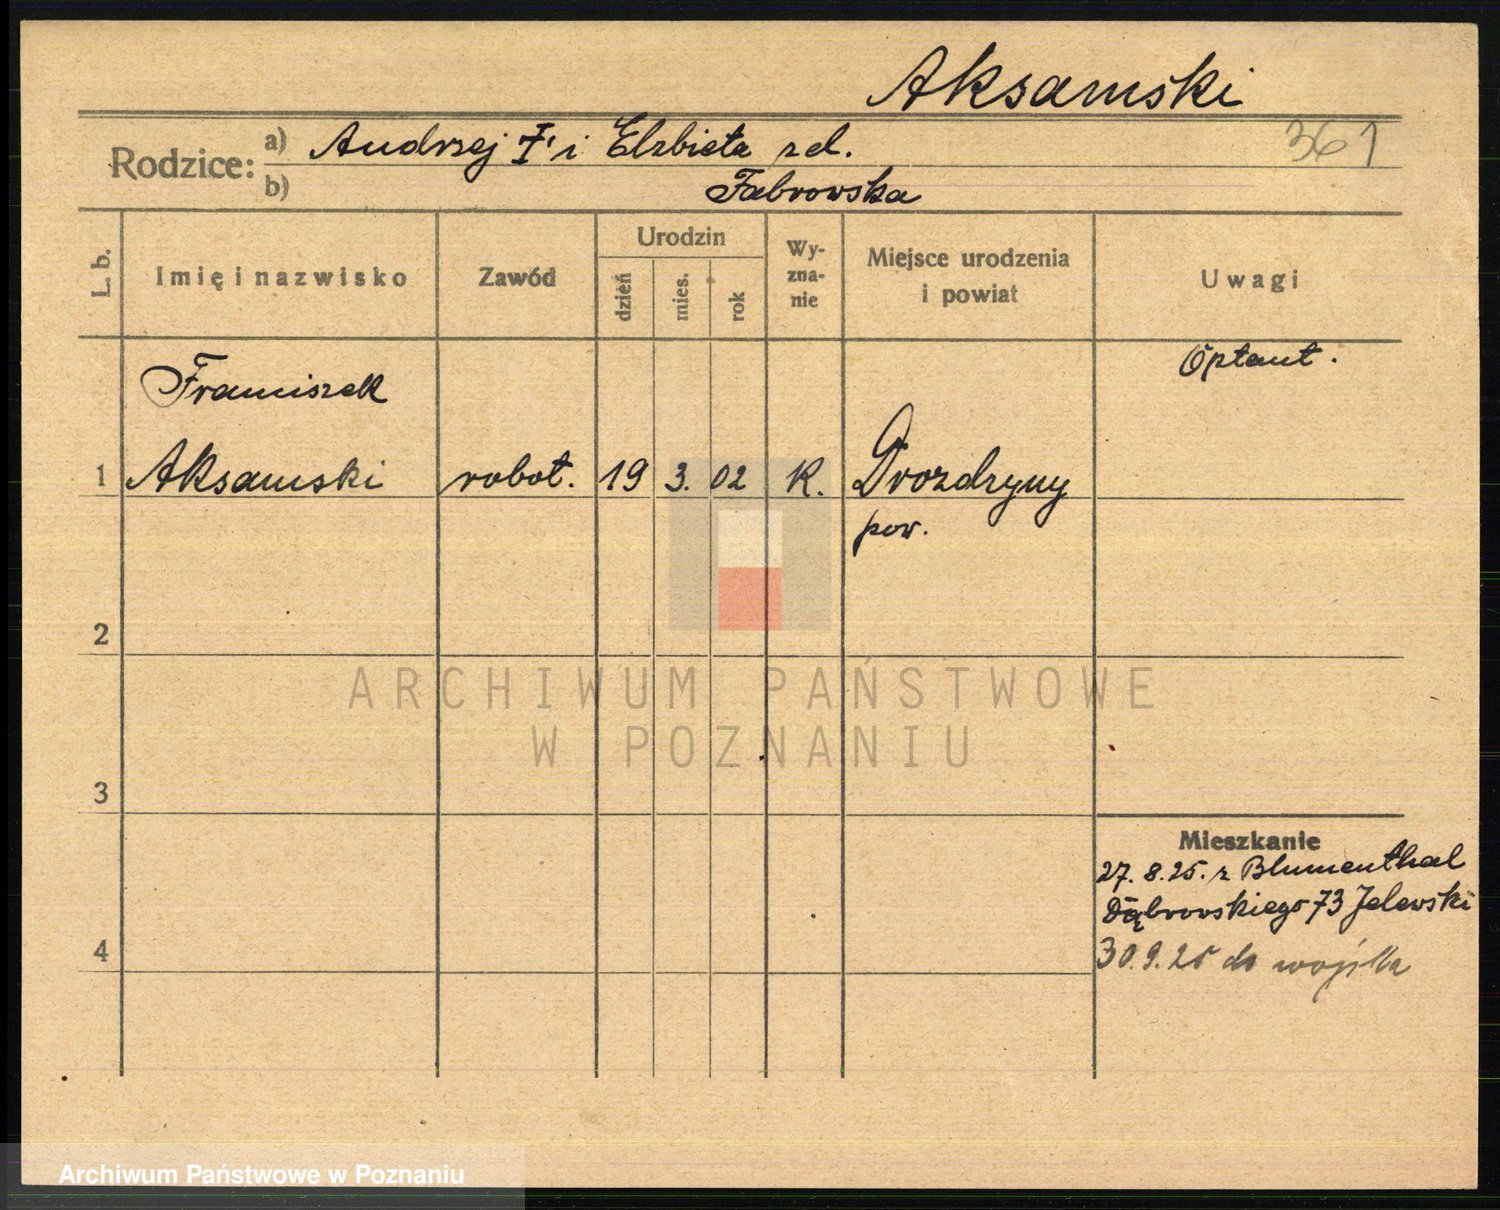 Aksamski
361
Rodzice: a) Andrzej i Elzbieta zd.
b) Fabrowska
L. b.
Imię i nazwisko
Zawód
Urodzin
dzień
mies.
rok
Wy-
zna-
nie
Miejsce urodzenia
i powiat
Uwagi
Optant.
Franciszek
1 Aksamski robot. 19 3. 02 K. Drozdzyny
pow.
2
ARCHIWUM PAŃSTWOWE
W POZNANIU
3
Mieszkanie
27. 8. 25. z Blumenthal
Dąbrowskiego 73 Jelewski
4
30. 9. 25 do wojska
Archiwum Państwowe w Poznaniu